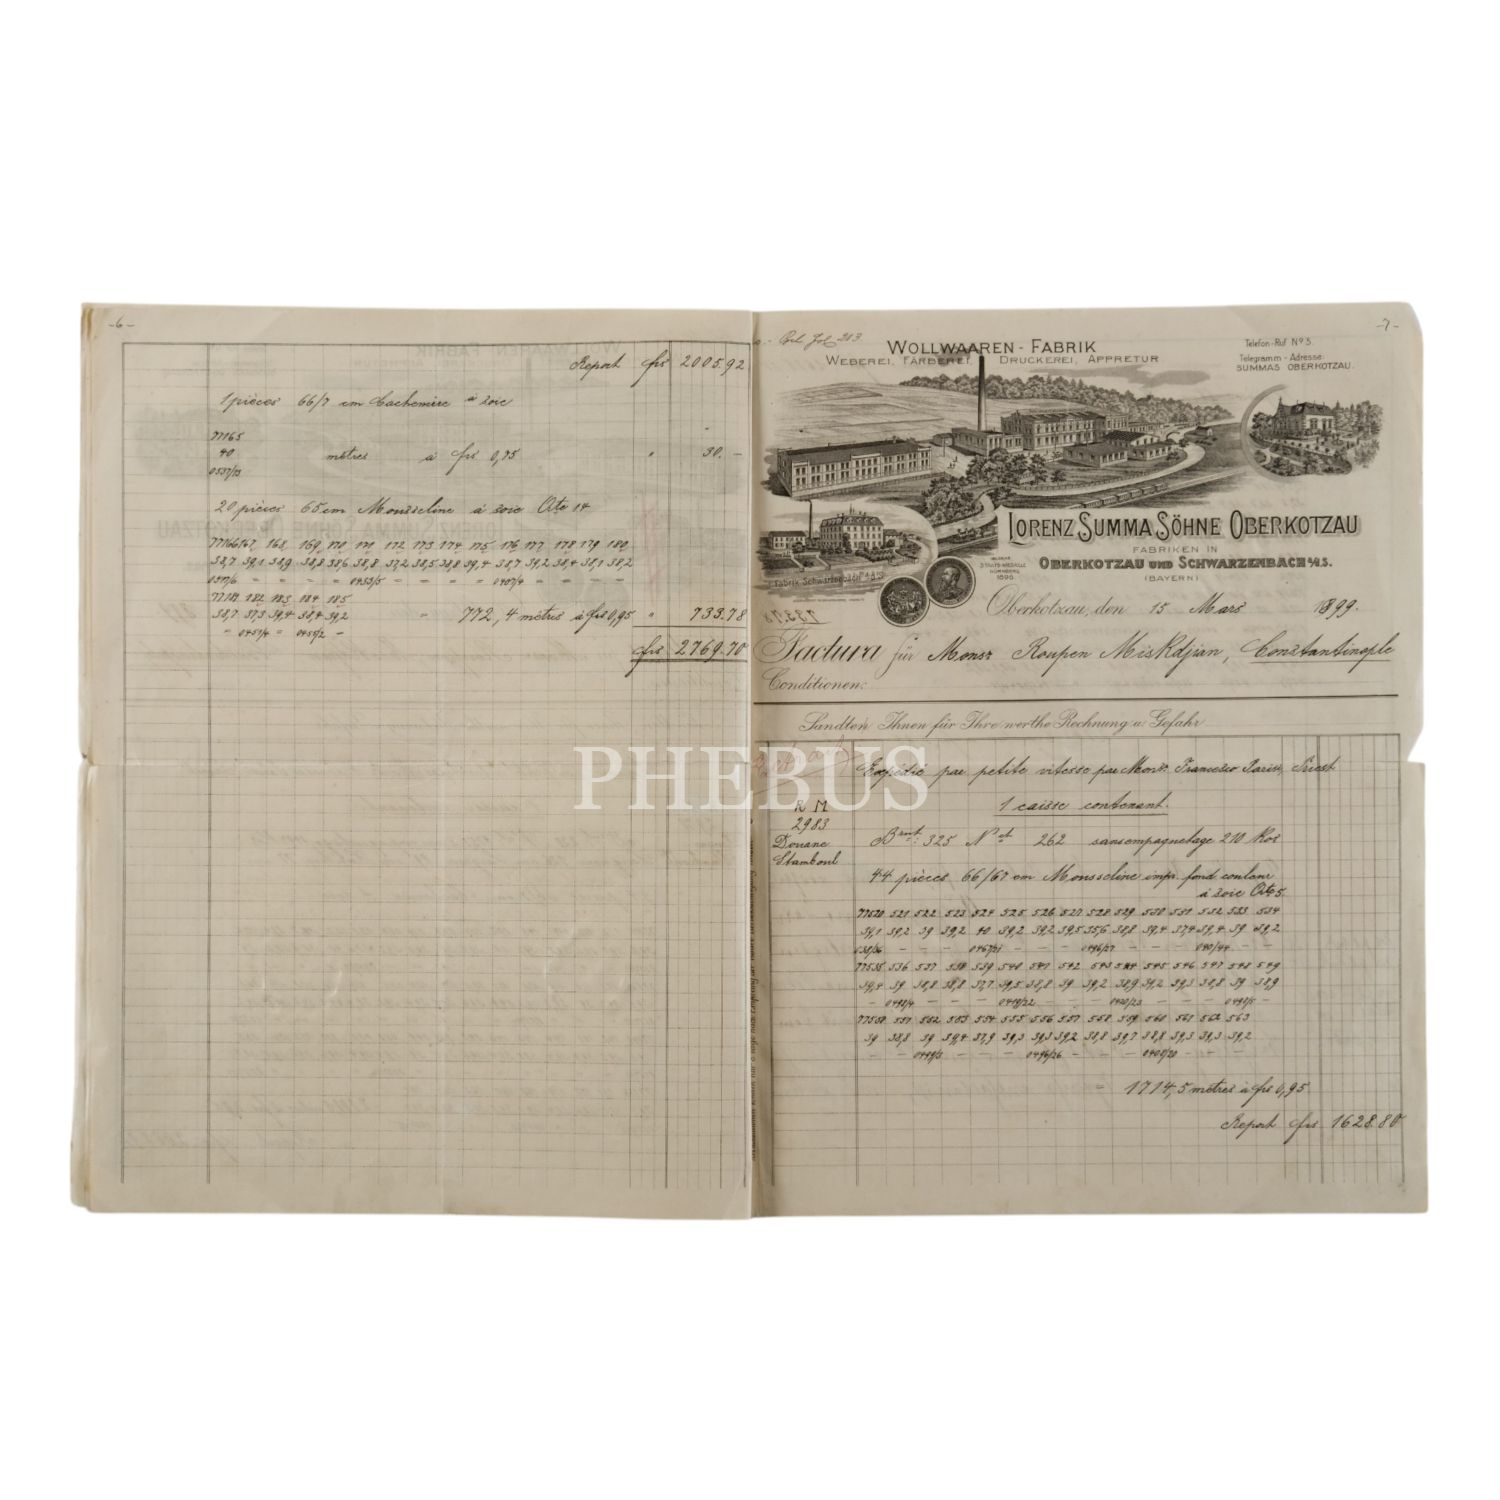 -6-
Report frs 2005.92
1 pièces 66/7 cm Cachemire à soie
77165
40 mètres à frs 0,75 " 30.-
0537/13
20 pièces 65 cm Mousseline à soie Qte 14
77166 167 168 169 170 171 172 173 174 175 176 177 178 179 180
38,7 39,1 38,9 38,8 38,6 38,8 37,2 38,5 38,8 39,4 38,7 39,2 38,4 38,1 38,2
77181 182 183 184 185
38,7 37,3 39,4 38,4 39,2 " 772,4 mètres à frs 0,95 " 733.78
frs 2769.70
-7-
WOLLWAAREN-FABRIK
WEBEREI, FÄRBEREI, DRUCKEREI, APPRETUR
Telefon-Ruf No 3.
Telegramm-Adresse:
SUMMAS OBERKOTZAU.
LORENZ SUMMA SÖHNE OBERKOTZAU
FABRIKEN IN
OBERKOTZAU UND SCHWARZENBACH a/S.
(BAYERN)
Fabrik Schwarzenbach a/S.
STAATS-MEDAILLE
NÜRNBERG
1896
Oberkotzau, den 15 Mars 1899.
Factura für Monsr Roupen Miskdjian, Constantinople
Conditionen:
Sandten Ihnen für Ihre werthe Rechnung u. Gefahr
Expédié par petite vitesse par Monsr Francesco Parisi, Triest
1 caisse contenant.
R M
2983
Douane
Stamboul
Brut: 325 Net 262 sans empaquetage 210 Kos
44 pièces 66/67 cm Mousseline impr. fond couleur
à soie Qte 5.
77520 521 522 523 524 525 526 527 528 529 530 531 532 533 534
39,1 39,2 39 39,2 40 39,2 39,2 39,5 35,6 38,8 39,4 37,4 39,4 39 39,2
77535 536 537 538 539 540 541 542 543 544 545 546 547 548 549
39,4 39 38,8 38,8 37,7 39,5 38,8 39 39,2 38,9 39,2 39,3 38,8 39 38,9
77550 551 552 553 554 555 556 557 558 559 560 561 562 563
39 38,8 39 39,4 37,9 39,3 39,3 39,2 38,8 39,7 38,8 39,3 39,3 39,2
= 1714,5 mètres à frs 0,95
Report frs 1628.80
PHEBUS